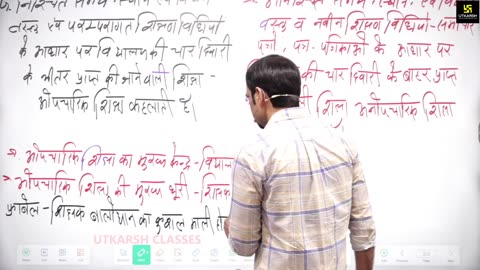 निश्चित समय, स्थान
वस्तु एवं परम्परागत शिक्षण विधियों
के आधार पर विद्यालय की चार दिवारी
के भीतर प्राप्त की जाने वाली शिक्षा -
औपचारिक शिक्षा कहलाती है।
वस्तु व नवीन शिक्षण विधियों-
पत्रों, पत्र-पत्रिकाओं के आधार पर
की चार दिवारी के बाहर प्राप्त
शिक्षा अनौपचारिक शिक्षा
औपचारिक शिक्षा का मुख्य केन्द्र -
औपचारिक शिक्षा की मुख्य धुरी - शिक्षक
फ्रोबेल - शिक्षक बालोद्यान का कुशल माली
UTKARSH CLASSES
UTKARSH